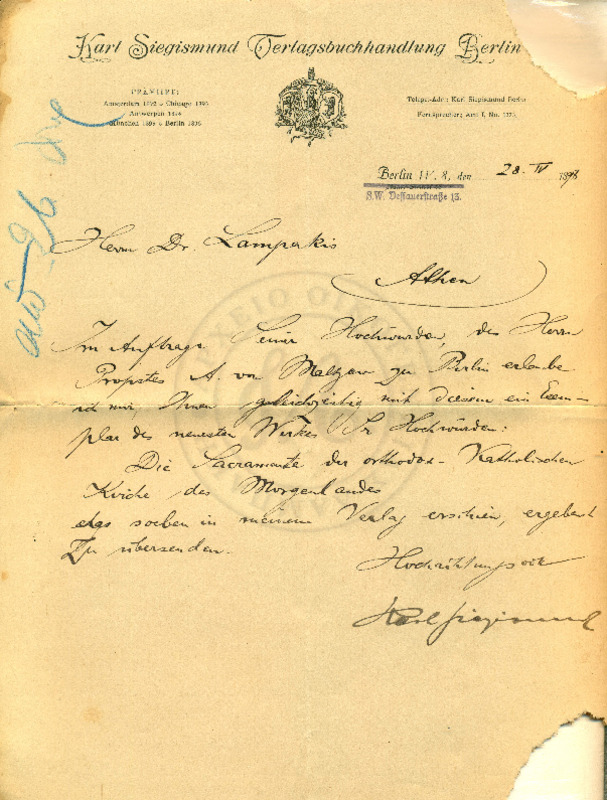 Karl Siegismund Verlagsbuchhandlung Berlin
PRÄMIIRT:
Amsterdam 1892 Chicago 1893
Antwerpen 1894
München 1895 Berlin 1896
Telegr.-Adr.: Karl Siegismund Berlin
Fernsprecher: Amt I, No.
Berlin W. 8, den 28. IV 1898
S.W. Dessauerstraße 13.
Herrn Dr. Lampakis
Athen
Im Auftrage Seiner Hochwürden, des Herrn
Propstes A. von Maltzew zu Berlin erlaube
ich mir, Ihnen gleichzeitig mit diesem ein Exem-
plar des neuesten Werkes Sr Hochwürden:
Die Sacramente der orthodox-Katholischen
Kirche des Morgenlandes
das soeben in meinem Verlag erschien, ergebenst
zu übersenden.
Hochachtungsvoll
Karl Siegismund